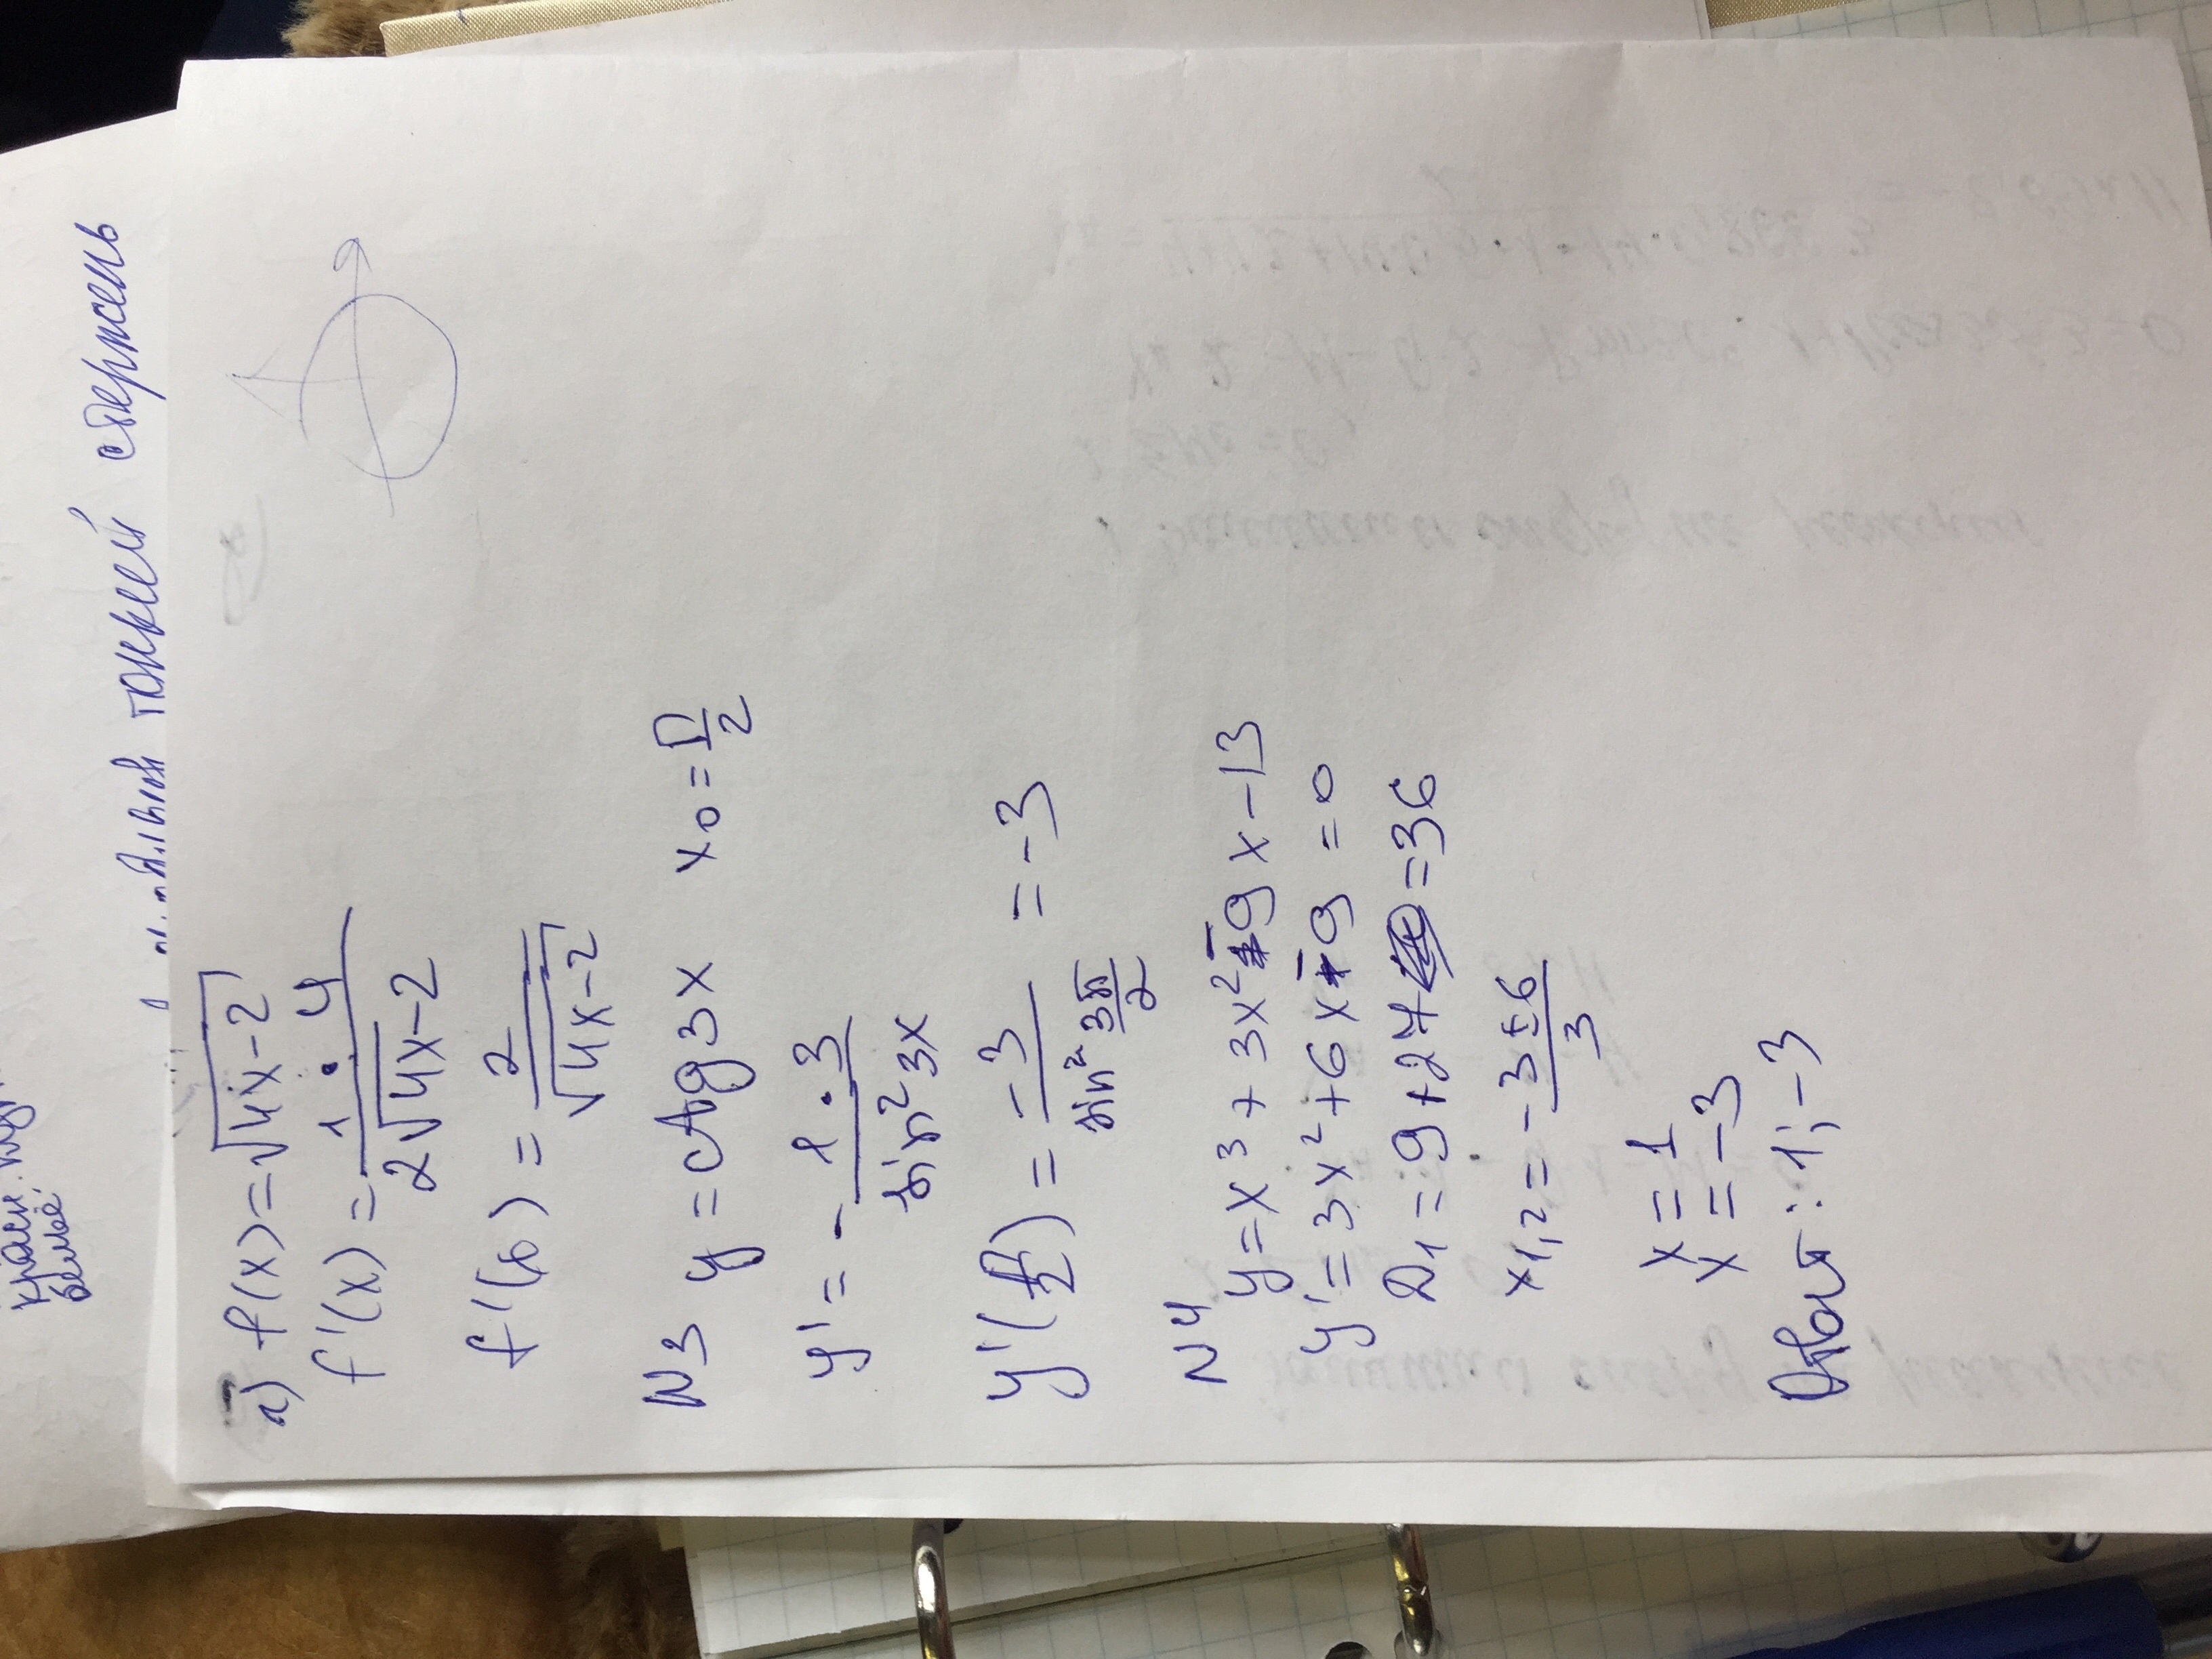 тонкий стержень
а) f(x)=√(4x-2)
f'(x) = 1 · 4 / 2√(4x-2)
f'(x) = 2/√(4x-2)
N3 y = ctg 3x x0 = π/2
y' = - 1·3 / sin² 3x
y'(π/2) = -3 / sin² 3π/2 = -3
N4
y = x³ + 3x² - 9x - 13
y' = 3x² + 6x - 9 = 0
D1 = 9 + 27 = 36
x1,2 = -3 ± 6 / 3
x = 1
x = -3
Ответ: 1; -3